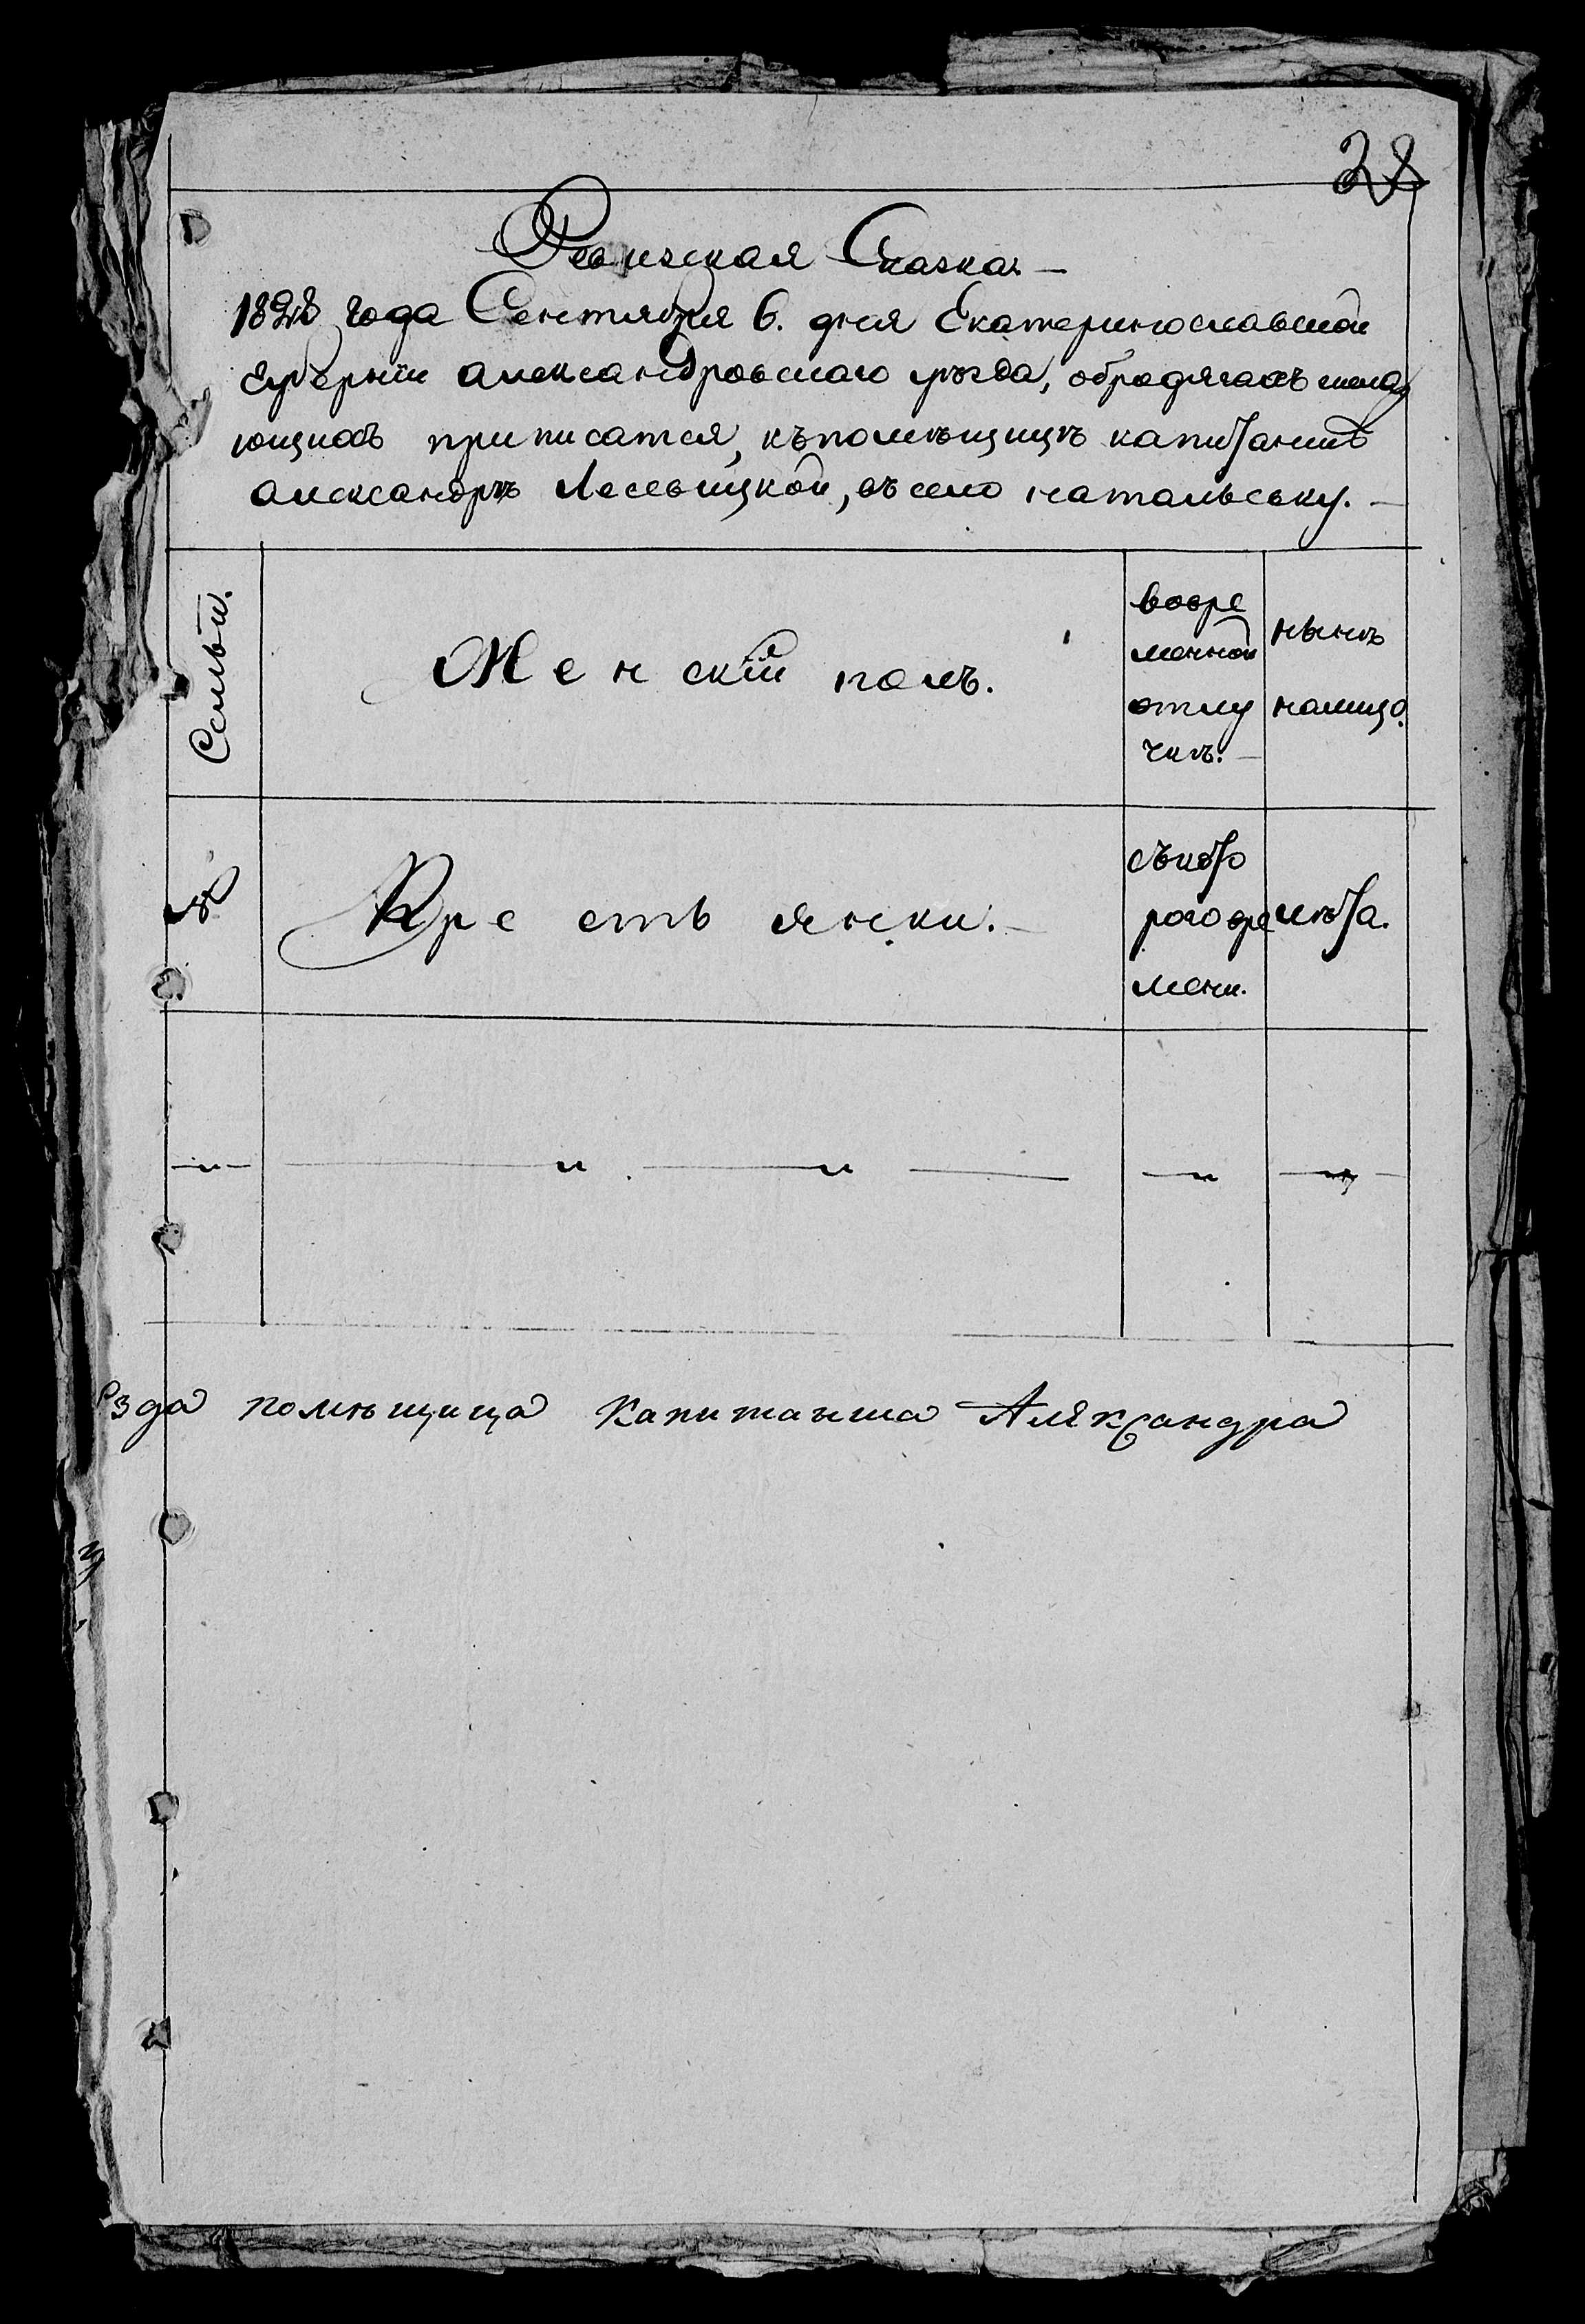 28
Ревизская Сказка. —
1828 года Сентября 6. дня Екатеринославской
губерніи александровскаго уѣзда, обродягахъ жела
ющихъ приписатся, къпомѣщицѣ капитаншѣ
александрѣ Лесевицкой, въ село натальевку. —
Семьи.
Женскій полъ.
вовре
менной
отлу
чкѣ. —
нынѣ
налицо.
№
Крестьянки. —
съкото
раговре
мени.
лѣта.
— „ —
— „ — „ —
— „
— „ —
ѣзда помѣщица капитанша Александра